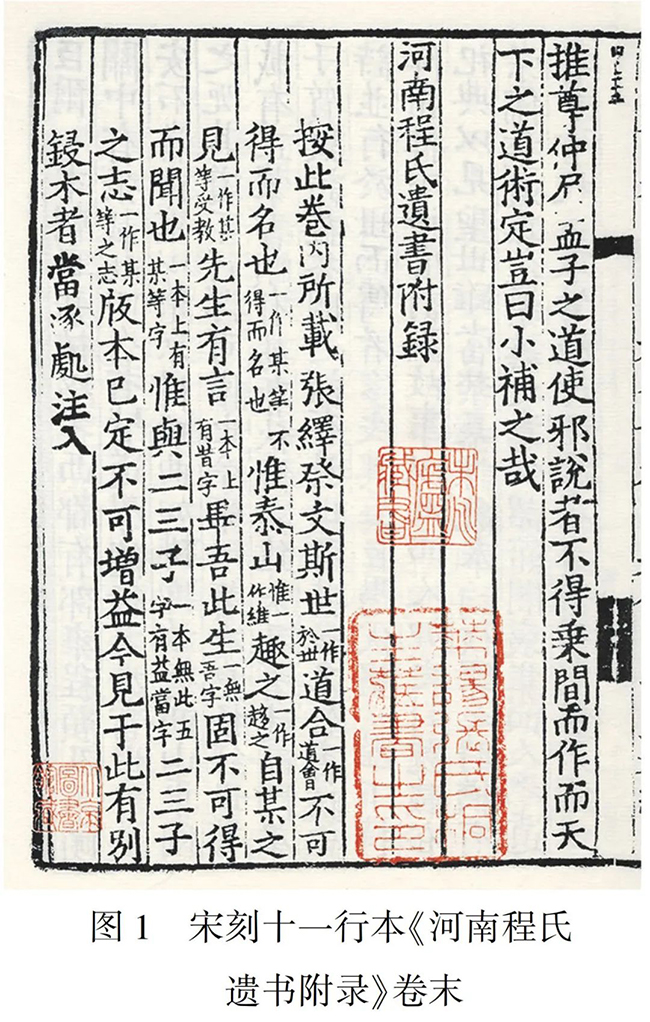 推尊仲尼孟子之道使邪說者不得乗間而作而天
下之道術定豈曰小補之哉
河南程氏遺書附録
按此卷内所載張繹祭文斯世一作於世道合一作道會不可
得而名也一作某等不得而名也惟泰山惟一作維趣之一作趨之自某之
見一作某等受教先生有言一本上有昔字吾此生一無吾字固不可得
而聞也一本上有某等字惟與二三子一本無此五字有益當字二三子
之志一作某等之志版本已定不可增益今見于此有别
鋟木者當逐處注入
图 1 宋刻十一行本《河南程氏
遗书附录》卷末